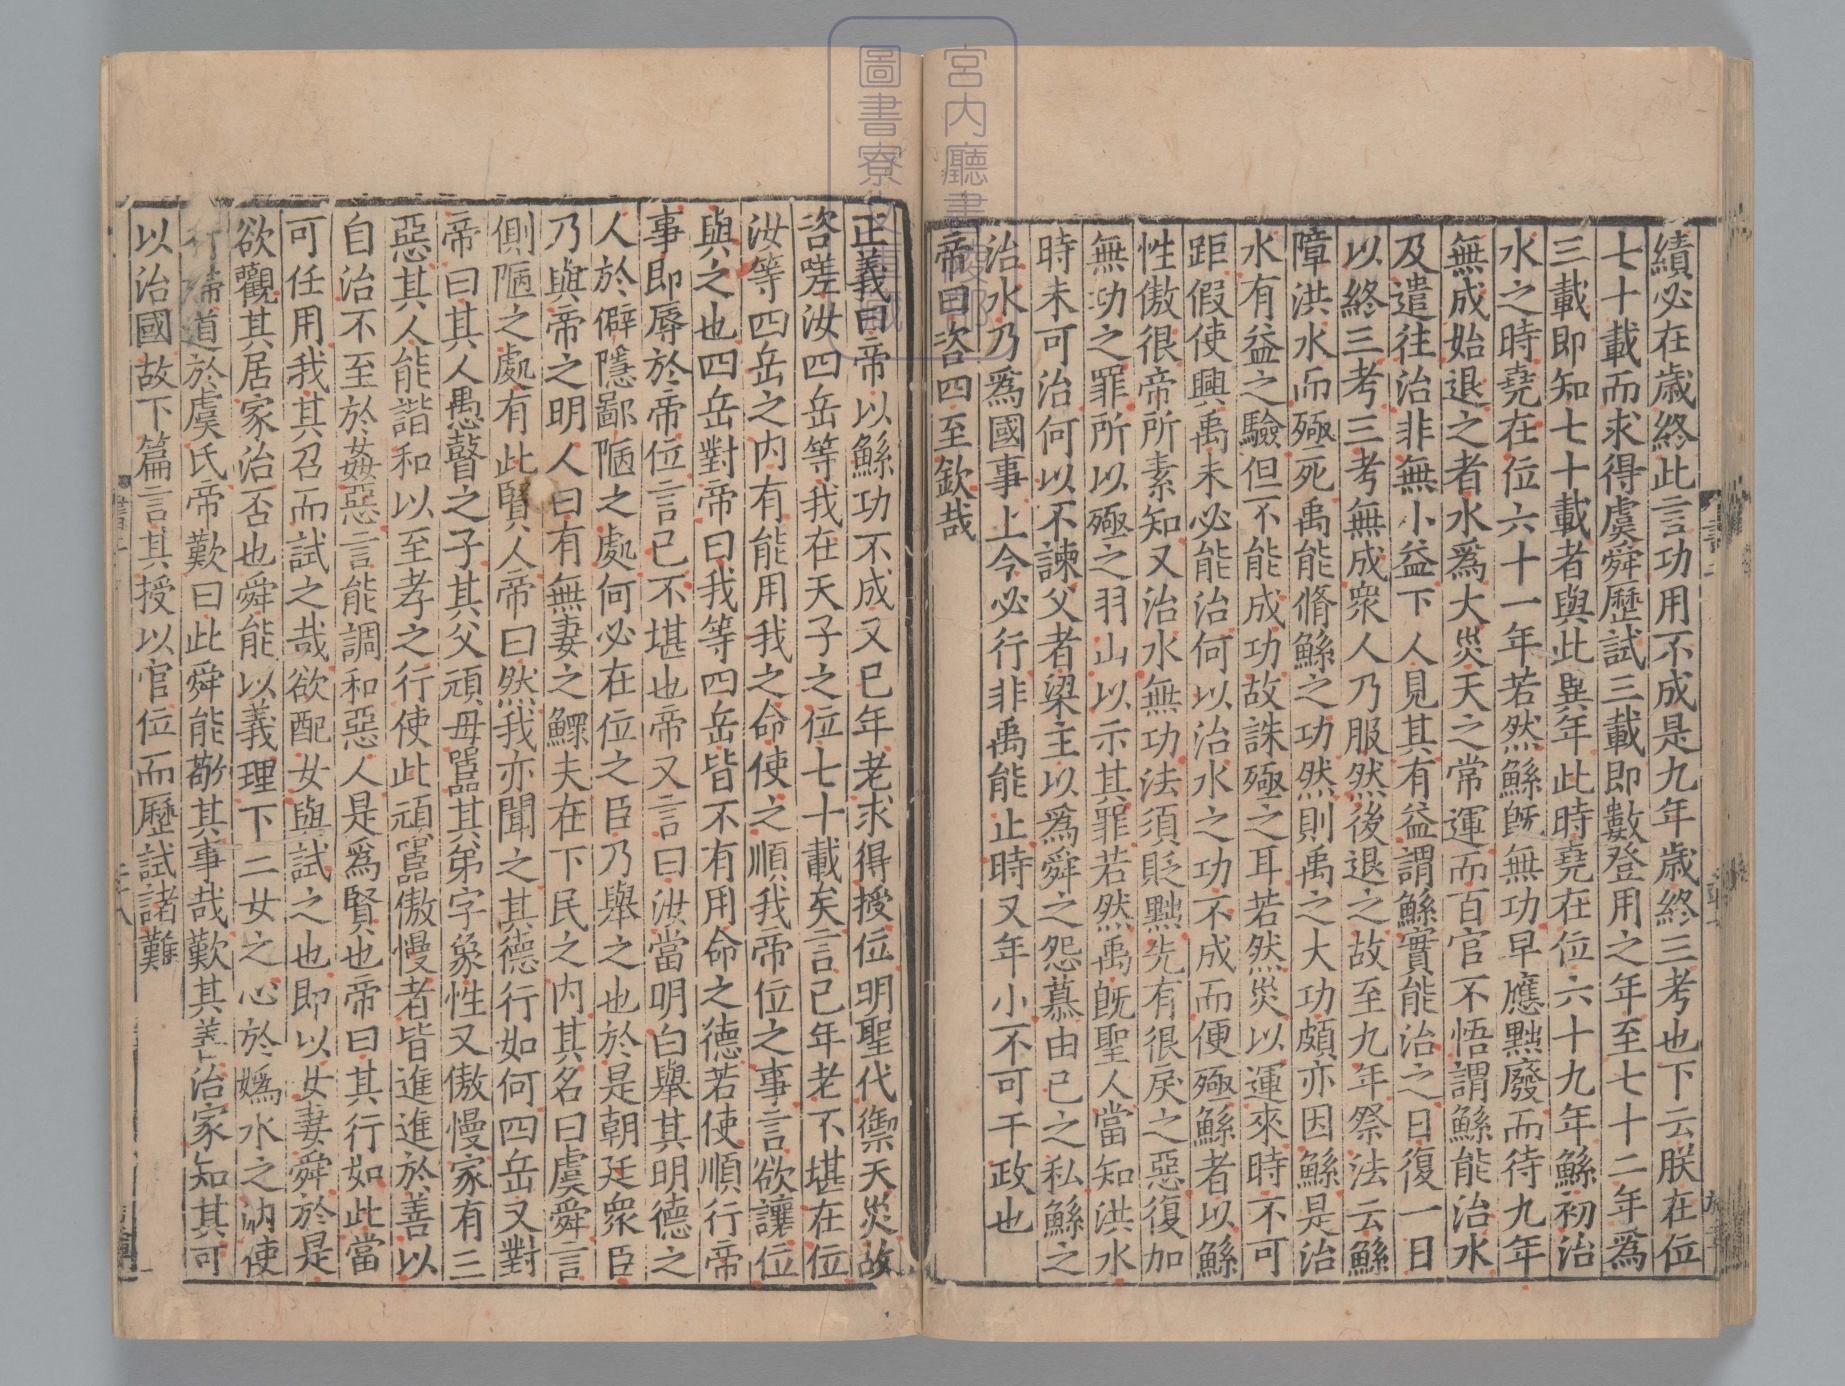 績必在歲終此言功用不成是九年歲終三考也下云朕在位
七十載而求得虞舜歷試三載即數登用之年至七十二年爲
三載即知七十載者與此異年此時堯在位六十九年鯀初治
水之時堯在位六十一年若然鯀旣無功早應黜廢而待九年
無成始退之者水爲大災天之常運而百官不悟謂鯀能治水
及遣往治非無小益下人見其有益謂鯀實能治之日復一日
以終三考三考無成衆人乃服然後退之故至九年祭法云鯀
障洪水而殛死禹能脩鯀之功然則禹之大功頗亦因鯀是治
水有益之驗但不能成功故誅殛之耳若然災以運來時不可
距假使興禹未必能治何以治水之功不成而便殛鯀者以鯀
性傲很帝所素知又治水無功法須貶黜先有很戾之惡復加
無功之罪所以殛之羽山以示其罪若然禹旣聖人當知洪水
時未可治何以不諫父者梁主以爲舜之怨慕由己之私鯀之
治水乃爲國事上令必行非禹能止時又年小不可干政也
帝曰咨四至欽哉
正義曰帝以鯀功不成又已年老求得授位明聖代禦天災故
咨嗟汝四岳等我在天子之位七十載矣言已年老不堪在位
汝等四岳之內有能用我之命使之順我帝位之事言欲讓位
與之也四岳對帝曰我等四岳皆不有用命之德若使順行帝
事即辱於帝位言己不堪也帝又言曰汝當明白舉其明德之
人於僻隱鄙陋之處何必在位之臣乃舉之也於是朝廷衆臣
乃與帝之明人曰有無妻之鰥夫在下民之內其名曰虞舜言
側陋之處有此賢人帝曰然我亦聞之其德行如何四岳又對
帝曰其人愚瞽之子其父頑母嚚其弟字象性又傲慢家有三
惡其人能諧和以至孝之行使此頑嚚傲慢者皆進進於善以
自治不至於姦惡言能調和惡人是爲賢也帝曰其行如此當
可任用我其召而試之哉欲配女與試之也即以女妻舜於是
欲觀其居家治否也舜能以義理下二女之心於嬀水之汭使
行婦道於虞氏帝歎曰此舜能敬其事哉歎其善治家知其可
以治國故下篇言其授以官位而歷試諸難
宮内廳書陵部
圖書寮